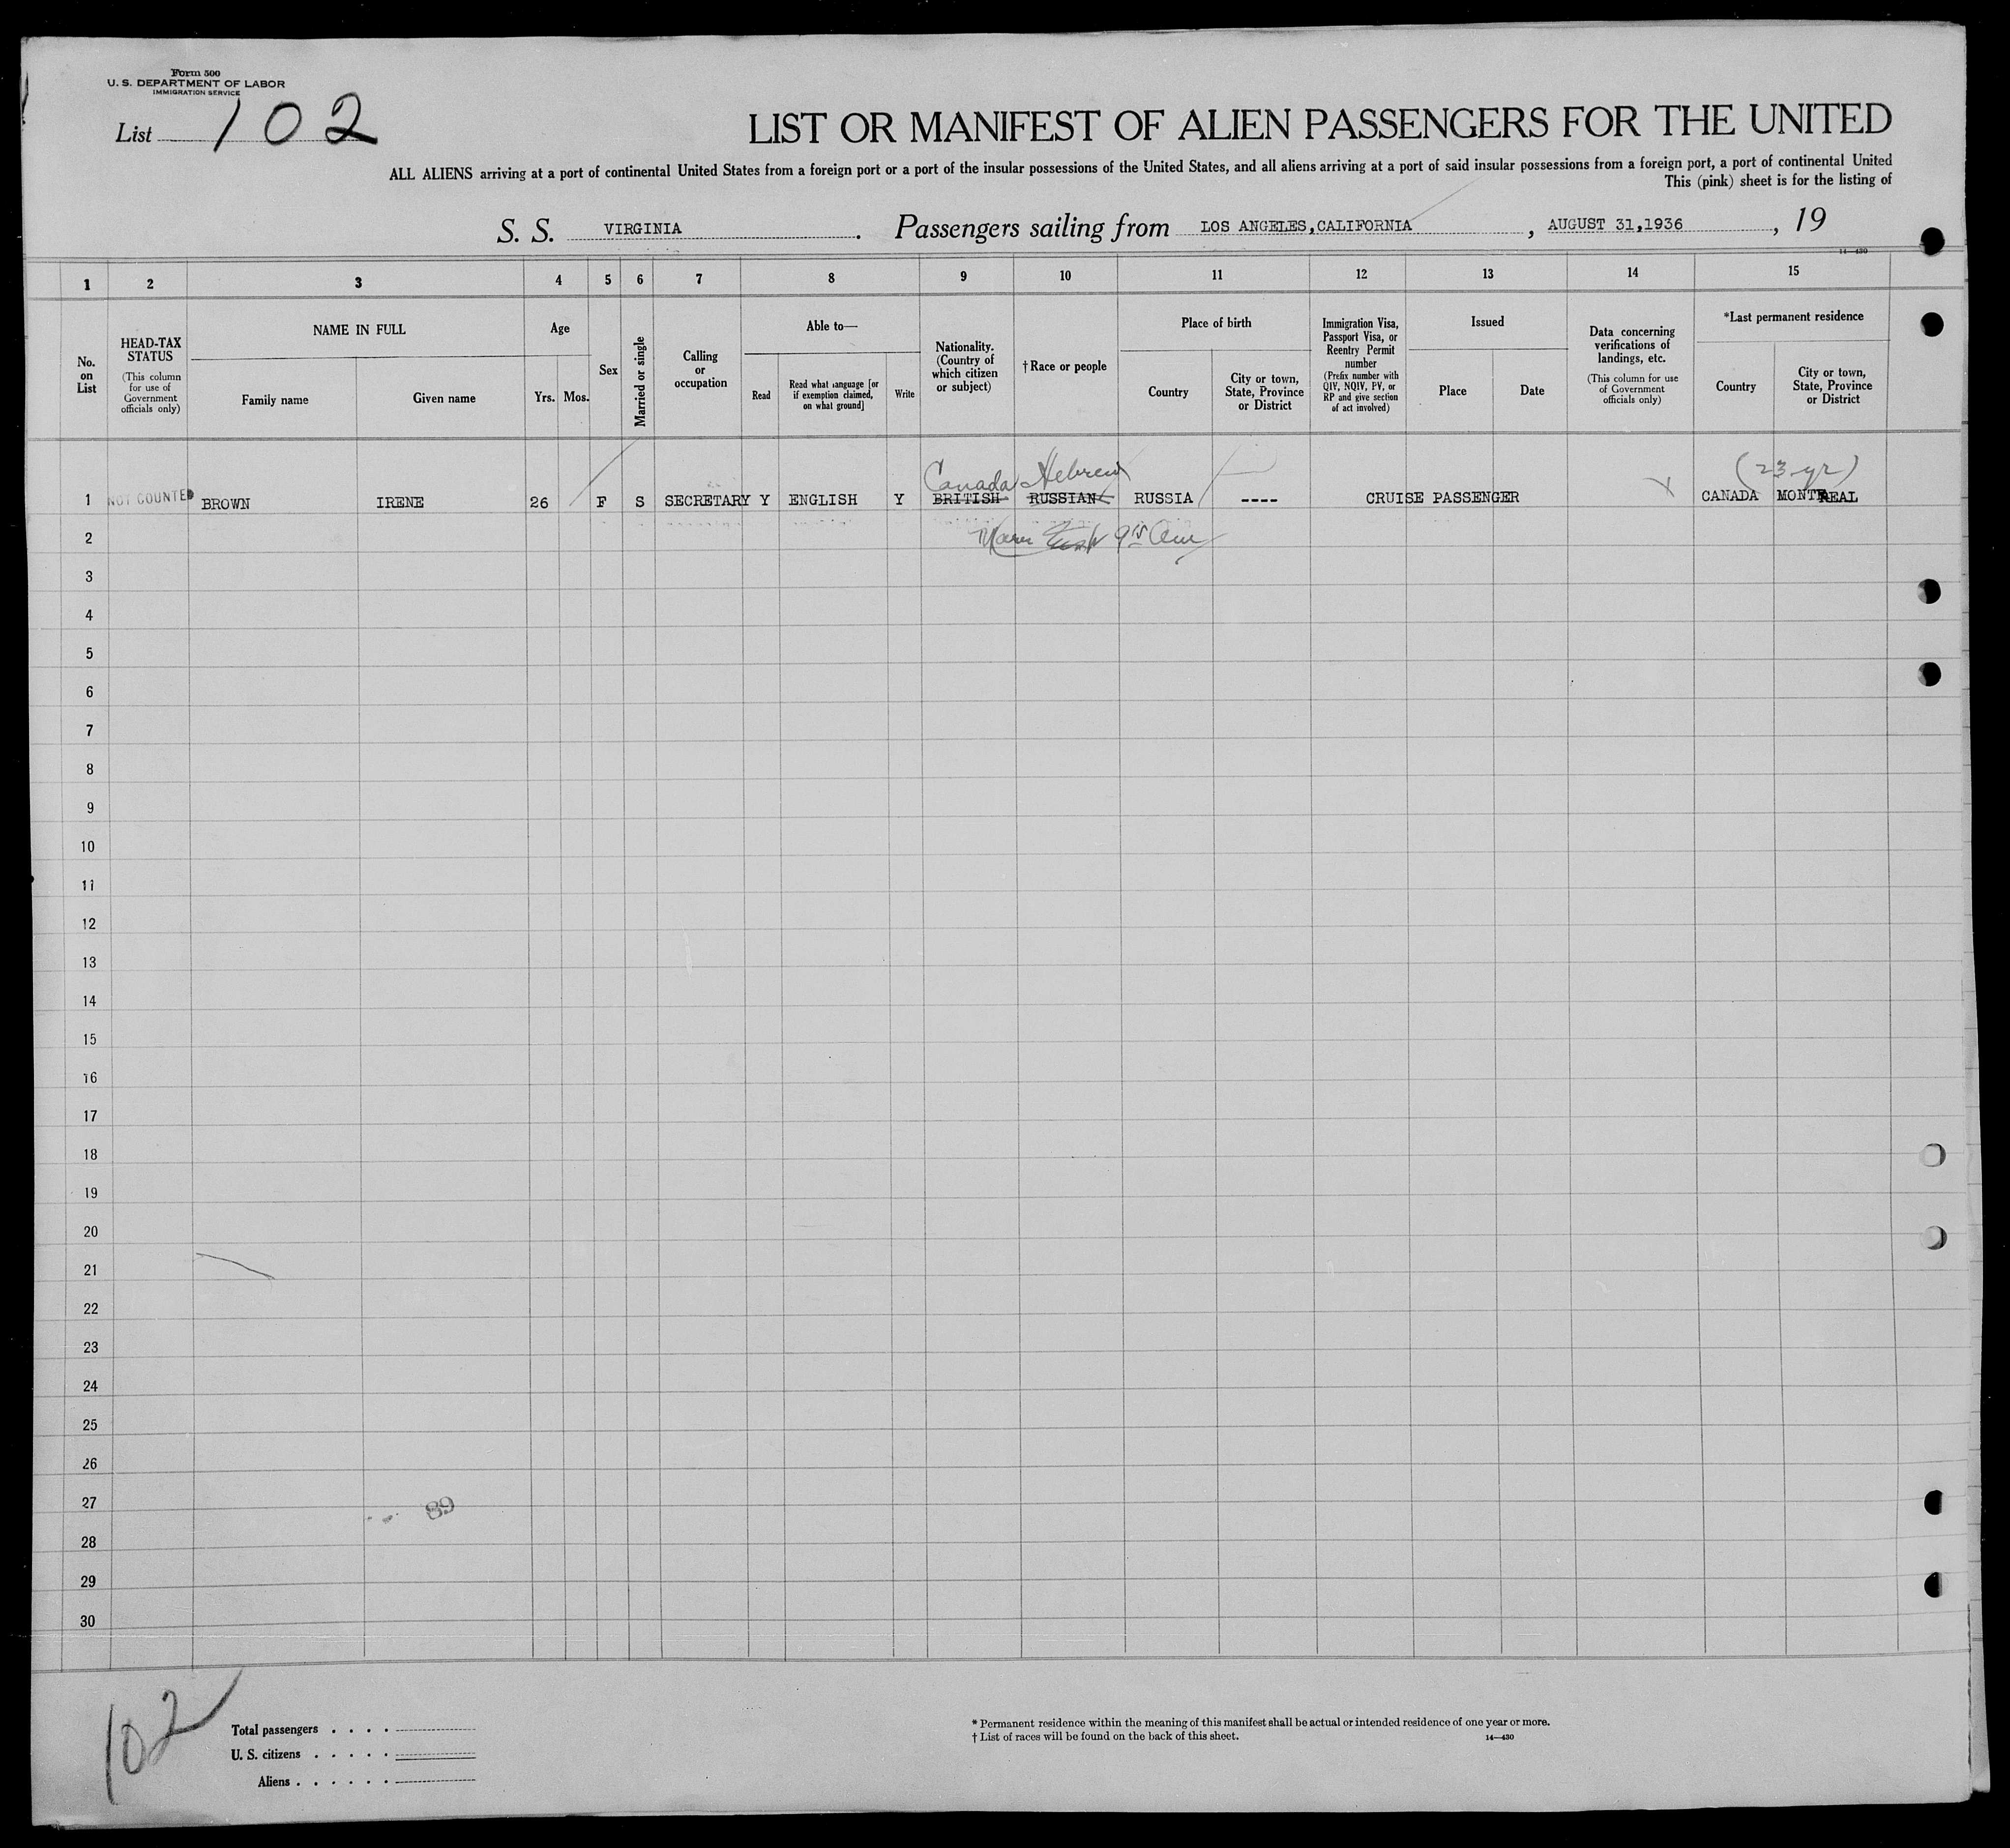 Form 500
U. S. DEPARTMENT OF LABOR
IMMIGRATION SERVICE
List 102
LIST OR MANIFEST OF ALIEN PASSENGERS FOR THE UNITED
ALL ALIENS arriving at a port of continental United States from a foreign port or a port of the insular possessions of the United States, and all aliens arriving at a port of said insular possessions from a foreign port, a port of continental United
This (pink) sheet is for the listing of
S. S. VIRGINIA . Passengers sailing from LOS ANGELES,CALIFORNIA , AUGUST 31,1936 , 19
14—430
1 2 3 4 5 6 7 8 9 10 11 12 13 14 15
No. on List
HEAD-TAX STATUS
(This column for use of Government officials only)
NAME IN FULL
Family name
Given name
Age
Yrs.
Mos.
Sex
Married or single
Calling or occupation
Able to—
Read
Read what language [or if exemption claimed, on what ground]
Write
Nationality. (Country of which citizen or subject)
†Race or people
Place of birth
Country
City or town, State, Province or District
Immigration Visa, Passport Visa, or Reentry Permit number
(Prefix number with QIV, NQIV, PV, or RP and give section of act involved)
Issued
Place
Date
Data concerning verifications of landings, etc.
(This column for use of Government officials only)
*Last permanent residence
Country
City or town, State, Province or District
Canada Hebrew (23 yr)
1 NOT COUNTED BROWN IRENE 26 F S SECRETARY Y ENGLISH Y BRITISH RUSSIAN RUSSIA ---- CRUISE PASSENGER CANADA MONTREAL
2
3
4
5
6
7
8
9
10
11
12
13
14
15
16
17
18
19
20
21
22
23
24
25
26
27 89
28
29
30
102
Total passengers . . . .
U. S. citizens . . . . .
Aliens . . . . . .
* Permanent residence within the meaning of this manifest shall be actual or intended residence of one year or more.
† List of races will be found on the back of this sheet.
14—430